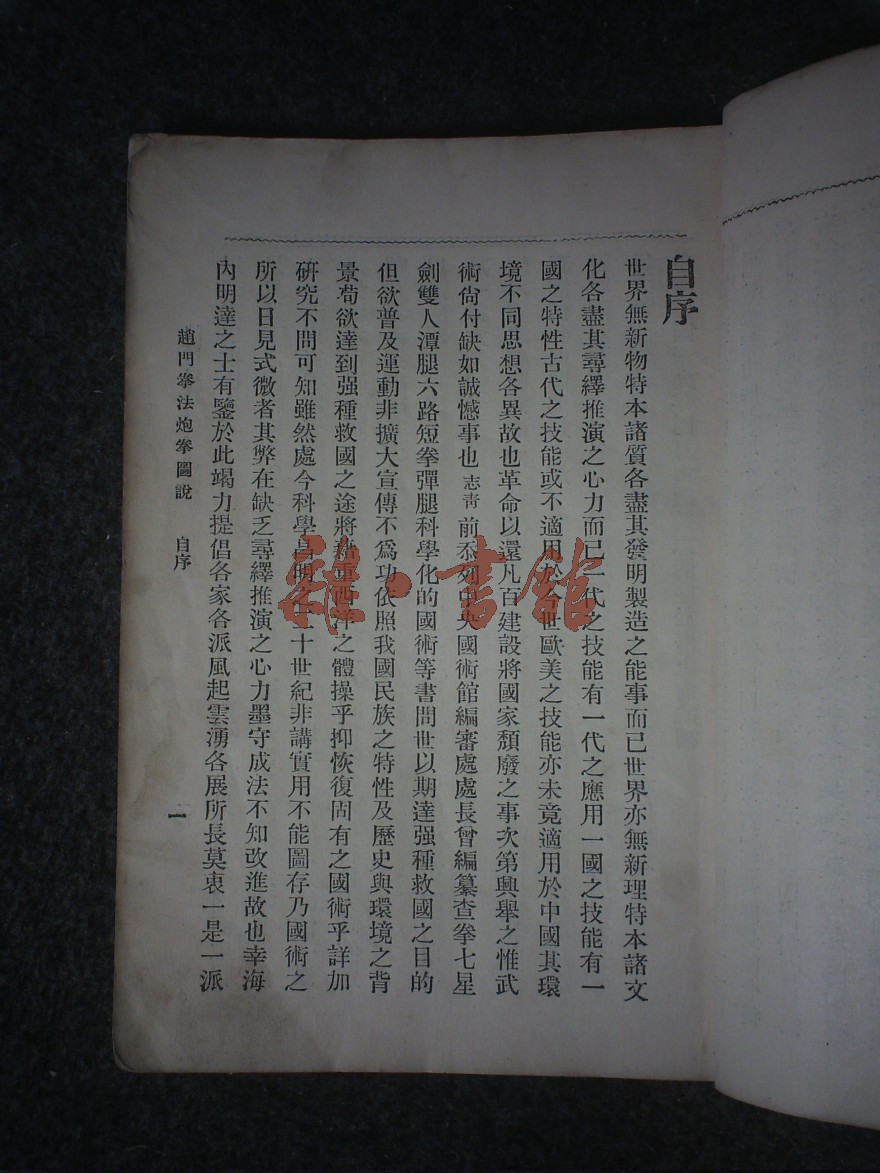 自序
世界無新物特本諸質各盡其發明製造之能事而已世界亦無新理特本諸文
化各盡其尋繹推演之心力而已一代之技能有一代之應用一國之技能有一
國之特性古代之技能或不適用於今世歐美之技能亦未竟適用於中國其環
境不同思想各異故也革命以還凡百建設將國家頹廢之事次第興舉之惟武
術尙付缺如誠憾事也志靑前忝列中央國術館編審處處長曾編纂查拳七星
劍雙人潭腿六路短拳彈腿科學化的國術等書問世以期達强種救國之目的
但欲普及運動非擴大宣傳不爲功依照我國民族之特性及歷史與環境之背
景荀欲達到强種救國之途將藉重西洋之體操乎抑恢復固有之國術乎詳加
硏究不問可知雖然處今科學昌明之二十世紀非講實用不能圖存乃國術之
所以日見式微者其弊在缺乏尋繹推演之心力墨守成法不知改進故也幸海
內明達之士有鑒於此竭力提倡各家各派風起雲湧各展所長莫衷一是一派
趙門拳法炮拳圖說 自序
一
雜·書館